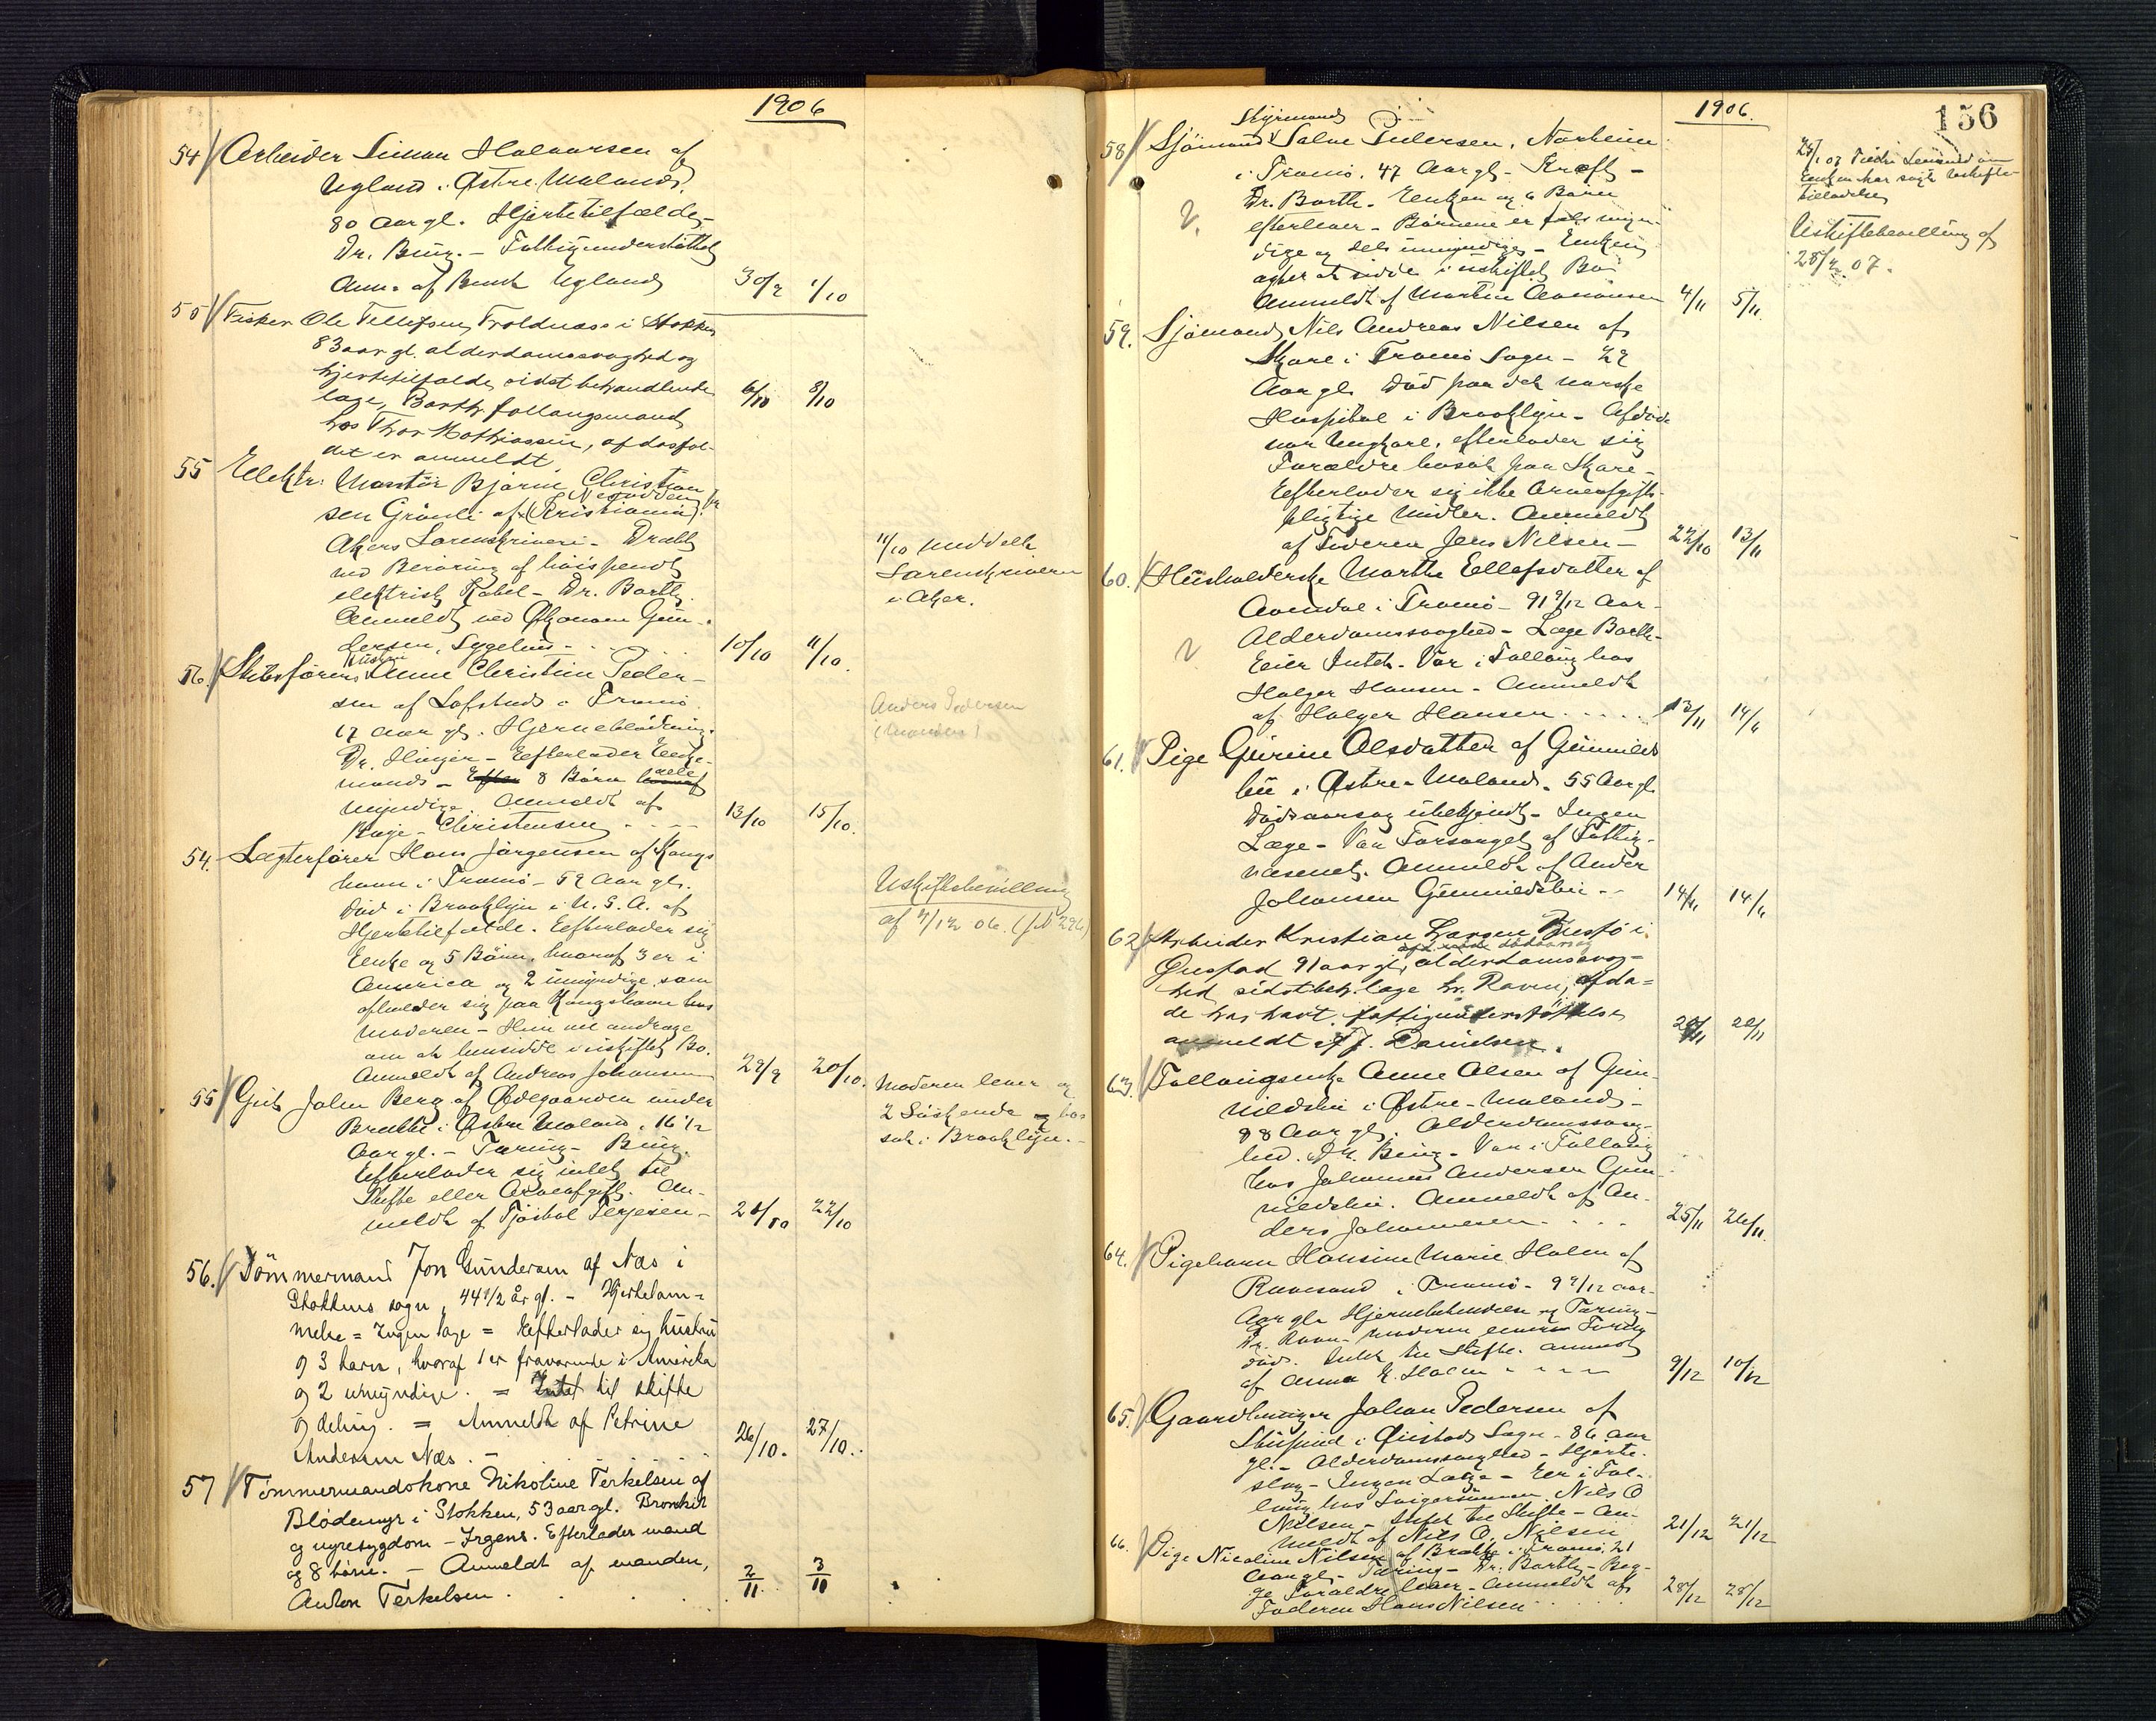 1906
54 Arbeider Simon Halvorsen af
Ugland i Østre Moland,
80 Aar gl. Hjertetilfælde,
Dr. Bing. - Fattigunderstøttet
Anm. af Bernt Ugland
30/9 1/10
55 Fisker Ole Tellefsen, Troldnæs i Stokken
83 aar gl. alderdomssvaghed og
hjertetilfælde, sidst behandlende
læge, Barth, follaugsmand
hos Thor Mathiassen, af dødsfal-
det er anmeldt
6/10 8/10
55 Elektr: Montør Bjarne Christian
sen Grønli af (Kristiania)
Nesodden
Akers Sorenskriveri - Dræbt
ved Berøring af høispendt
elektrisk Kabel - Dr. Barth.
Anmeldt ved Økonom Gun-
dersen, Sygehus - . . .
10/10 11/10.
11/10 meddelt
Sorenskriveren
i Aker.
56. Skibsførers Anne Christine Peder-
Hustru
sen af Lofstad i Tromø
67 Aar gl. Hjerneblødning.
Dr. Hinger - Efterlader Enke-
mand - Efter 8 Børn hvoraf
alle
myndige. Anmeldt af
Baje - Christensen . - - -
13/10 15/10.
Anders Pedersen
(Manden)
54. Lægterfører Hans Jørgensen af Kongs
havn i Tromø - 59 Aar gl.
Død i Brooklyn i U. S. A. af
Hjertetilfælde. Efterlader sig
Enke og 5 Børn, hvoraf 3 er i
America og 2 umyndige som
opholder sig paa Kongshavn hos
Moderen - Hun vil andrage
om at hensidde i uskiftet Bo.
Anmeldt af Andreas Johansen
29/9 20/10.
Uskiftebevilling
af 4/12 06. (J.N 296)
55 Gut John Berg af Ødegaarden under
Brække i Østre Moland, 16 1/2
Aar gl. - Tæring - Bing.
Efterlader sig intet til
Skifte eller Arveafgift. An-
meldt af Tjøstol Terjesen -
20/10 22/10
Moderen lever og
2 Søskende og bo
sat i Brooklyn. -
56. Tömmermand Jon Gundersen af Næs i
Stokkens sogn, 44 1/2 år gl. - Hjertelam-
melse = Ingen læge = Efterlader sig hustru
og 3 barn, hvoraf 1 er fraværende i Amerika
og 2 umyndige. = Intet til skifte
og deling. = Anmeldt af Petrine
Andersen Næs. -
26/10. 27/10.
57 Tømmermandskone Nikoline Terkelsen af
Blødemyr i Stokken, 53 aar gl. Bronkit
og nyresygdom - Irgens. Efterlader mand
og 8 børn. - Anmeldt af manden,
Anton Terkelsen.
2/11. 3/10
1906.
156
58 Sjømand Salve Pedersen, Narheim
Styrmand
i Tromø. 47 Aar gl - Kræft -
Dr. Barth - Enken og 6 Børn
efterlever - Børnene er dels myn-
dige og dels umyndige - Enken
agter at sidde i uskiftet Bo
Anmeldt af Martin Aamonsen
4/11 5/11.
Enken har søgt Uskifte-
tilladelse
Uskiftebevilling af
28/2 07.
59. Sjømand Nils Andreas Nilsen af
Skare i Tromø Sogn - 29
Aar gl. Død paa det norske
Hospital i Brooklyn - Afdøde
var Ungkarl, efterlader sig
Forældre bosat paa Skare -
Efterlader sig ikke Arveafgifts-
pligtige Midler. Anmeldt
af Faderen Jens Nilsen -
22/10 13/11
60. Husholderske Marthe Ellefsdatter af
Avendal i Tromø - 91 9/12 Aar -
Alderdomssvaghed - Læge Barth -
Eier Intet - Var i Follaug hos
Holger Hansen - Anmeldt
af Holger Hansen . . . . .
13/11 14/11
61. Pige Gurine Olsdatter af Gunnilds
bu i Østre - Moland. 55 Aar gl
Dødsaarsag ubekjendt - Ingen
Læge - Var Forsørget af Fattig-
væsenet. Anmeldt af Anders
Johansen Gunnildsbu - -
14/11 14/11
62 Arbeider Kristian Larsen Buefø i
Øiestad 91 aar gl, alderdomssvag-
hed sidst beh. læge hr. Raven, afdø-
de har havt fattigunderstøttelse
anmeldt af J. Danielsen.
20/11 20/11
63. Follaugsenke Anne Olsen af Gun-
nildsbu i Østre - Moland -
88 Aar gl. Alderdomssvag-
hed. Dr. Bing - Var i Follaug
hos Johannes Andersen Gun-
nildsbu. Anmeldt af An-
ders Johannesen . . .
25/11 26/11.
64. Pigebarn Hansine Marie Holm af
Revesand i Tromø - 9 9/12 aar -
Aar gl. Hjernebetændelse og Tæring -
Dr. Raven - Moderen lever Faderen
død. Intet til Skifte. Anmeldt
af Anna E. Holm - - - -
9/12 10/12
65. Gaardbruger Johan Pedersen af
i Øiestads Sogn - 86 Aar
gl. - Alderdomssvaghed - Hjerte-
slag - Ingen Læge - Er i Fol-
laug hos Svigersønnen Nils O
Nilsen - Intet til Skifte - An-
meldt af Nils O. Nilsen
21/12 21/12
66. Pige Nicoline Nilsen af Brække i Tromø, 21
Aar gl. Tæring - Dr. Barth - Beg-
ge Forældre lever - Anmeldt af
Faderen Hans Nilsen . . .
28/12 28/12